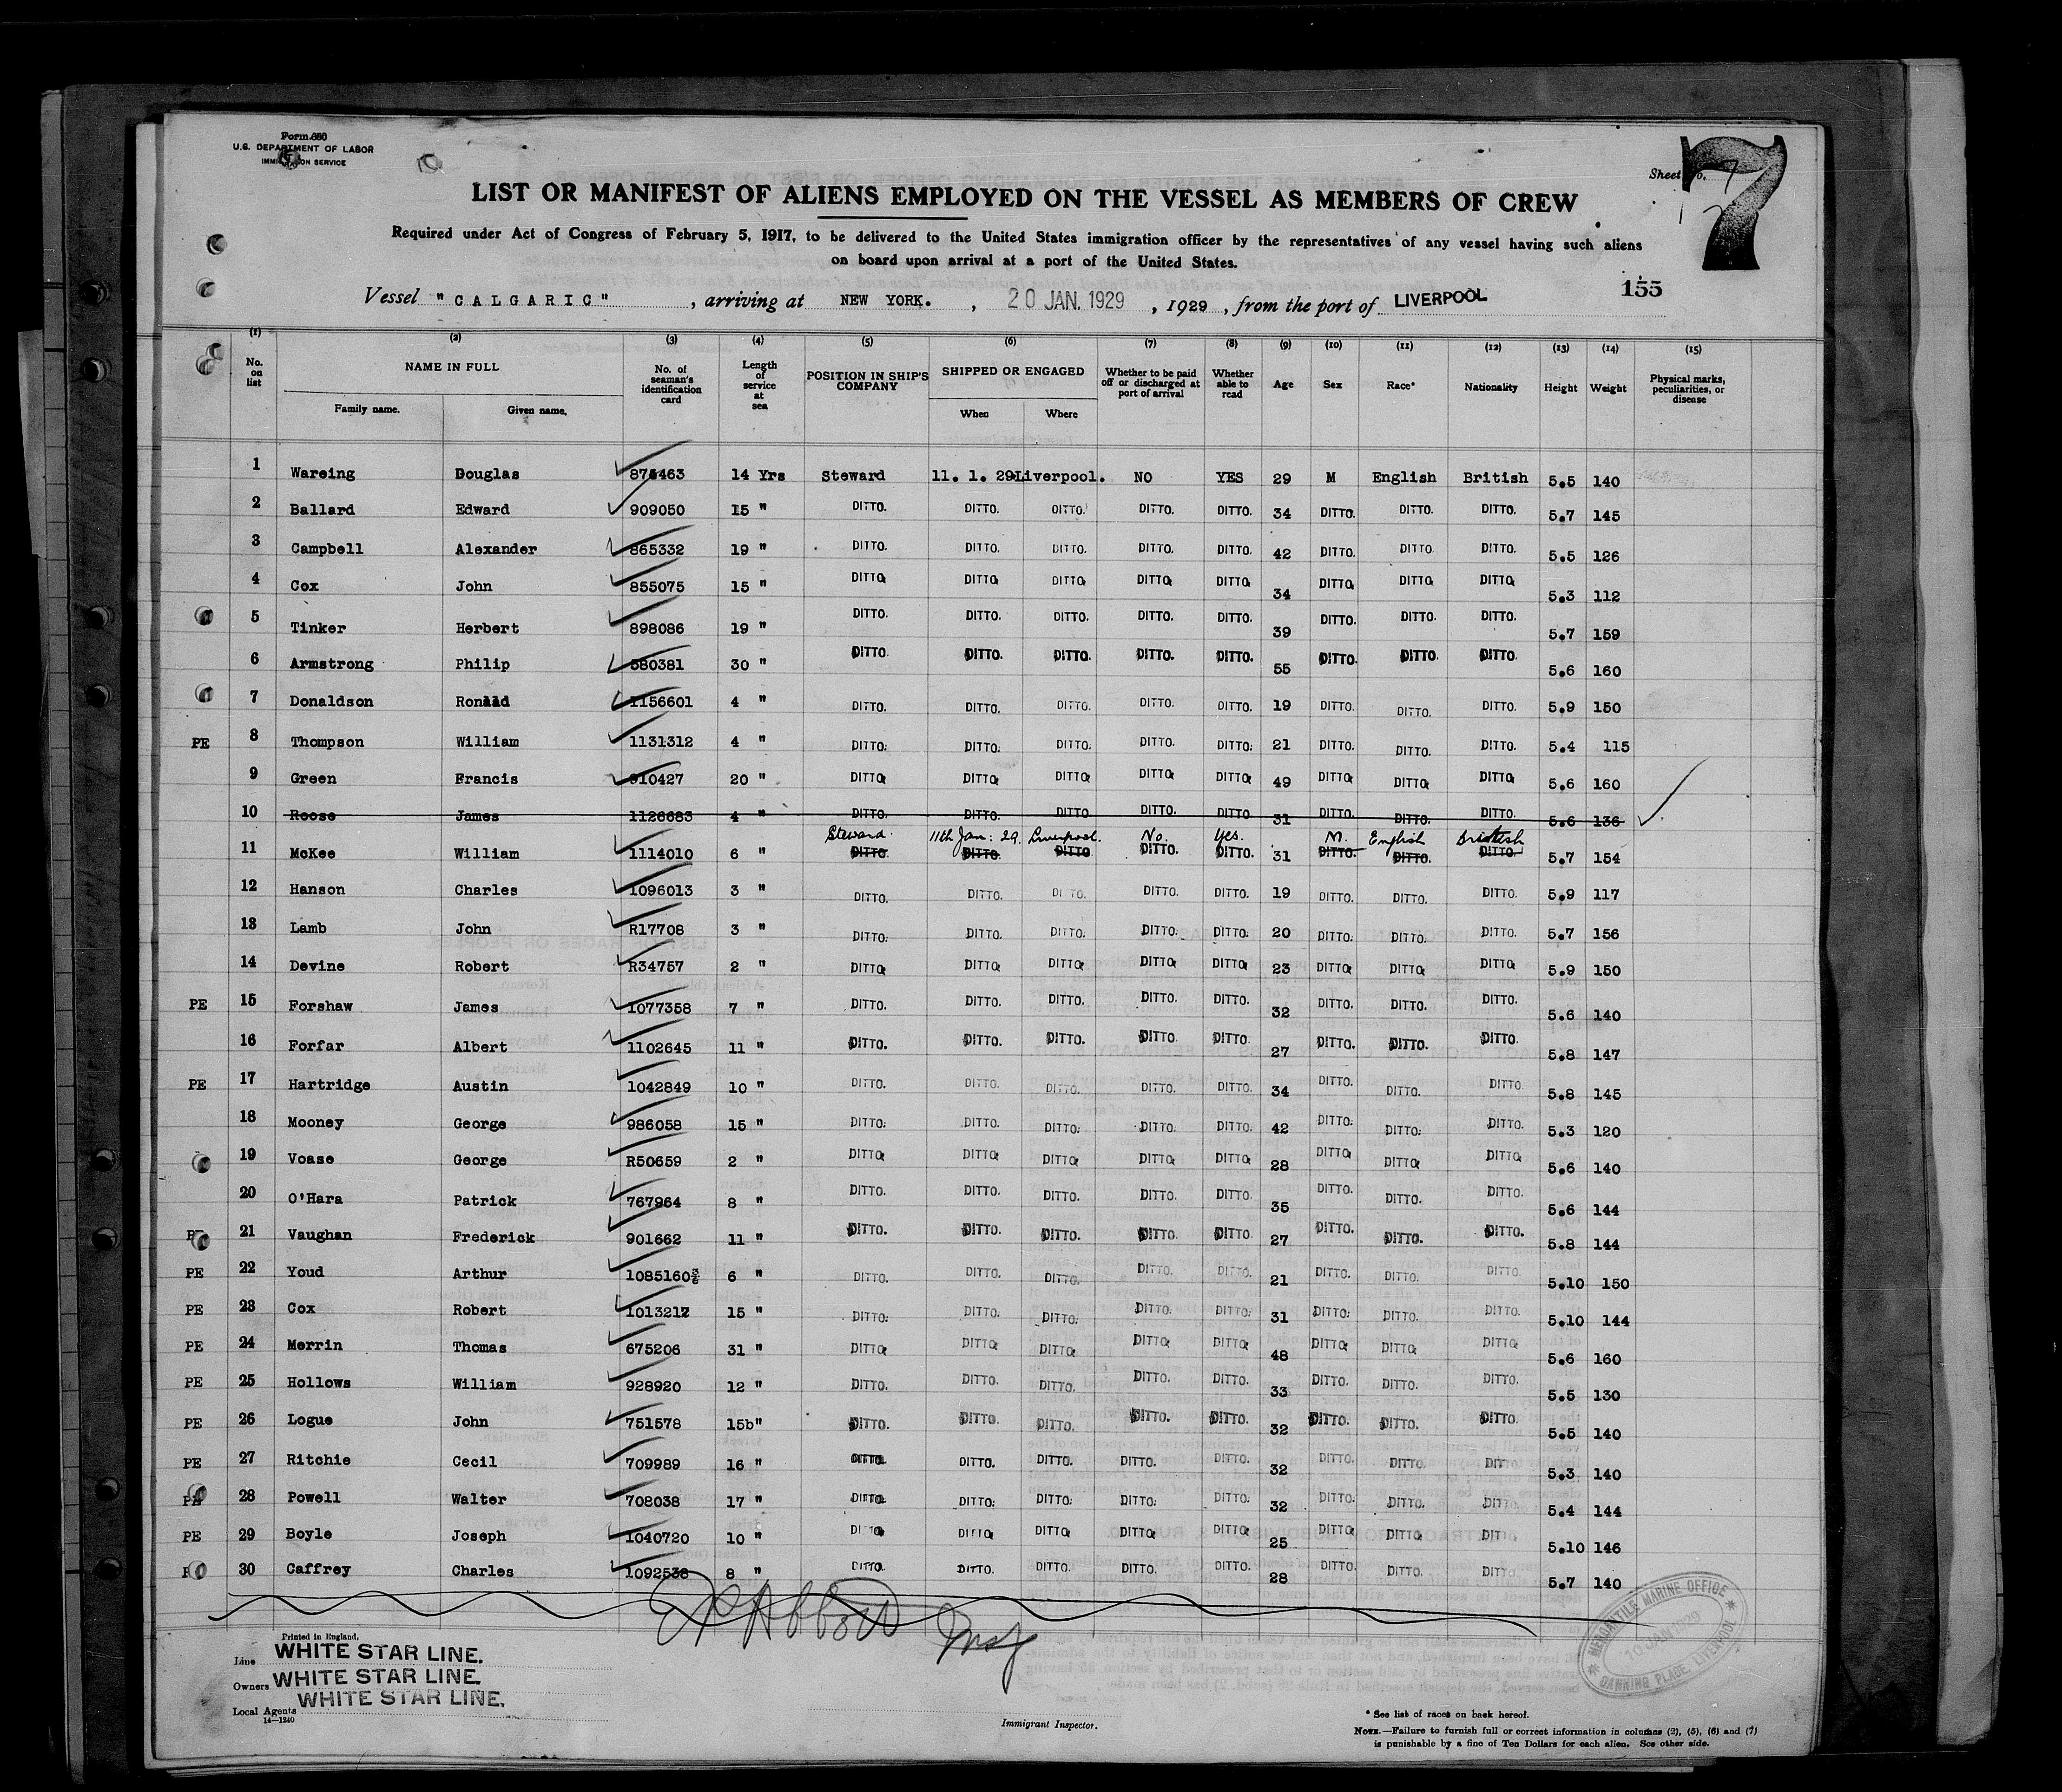 Form 680
U.S. DEPARTMENT OF LABOR
IMMIGRATION SERVICE
Sheet No. 7
7
LIST OR MANIFEST OF ALIENS EMPLOYED ON THE VESSEL AS MEMBERS OF CREW
Required under Act of Congress of February 5, 1917, to be delivered to the United States immigration officer by the representatives of any vessel having such aliens
on board upon arrival at a port of the United States.
155
Vessel "CALGARIC", arriving at NEW YORK., 20 JAN. 1929, 1929, from the port of LIVERPOOL
(1) (2) (3) (4) (5) (6) (7) (8) (9) (10) (11) (12) (13) (14) (15)
No. on list NAME IN FULL Family name. Given name. No. of seaman's identification card Length of service at sea POSITION IN SHIP'S COMPANY SHIPPED OR ENGAGED When Where Whether to be paid off or discharged at port of arrival Whether able to read Age Sex Race* Nationality Height Weight Physical marks, peculiarities, or disease
1 Wareing Douglas 875463 14 Yrs Steward 11. 1. 29 Liverpool. NO YES 29 M English British 5.5 140
2 Ballard Edward 909050 15 " DITTO. DITTO. DITTO. DITTO. DITTO. 34 DITTO. DITTO. DITTO. 5.7 145
3 Campbell Alexander 865332 19 " DITTO. DITTO. DITTO. DITTO. DITTO. 42 DITTO. DITTO. DITTO. 5.5 126
4 Cox John 855075 15 " DITTO DITTO DITTO DITTO DITTO 34 DITTO DITTO DITTO 5.3 112
5 Tinker Herbert 898086 19 " DITTO. DITTO. DITTO. DITTO. DITTO. 39 DITTO. DITTO. DITTO. 5.7 159
6 Armstrong Philip 580381 30 " DITTO. DITTO. DITTO. DITTO. DITTO. 55 DITTO. DITTO. DITTO. 5.6 160
7 Donaldson Ronald 1156601 4 " DITTO. DITTO. DITTO. DITTO. DITTO. 19 DITTO. DITTO. DITTO. 5.9 150
PE 8 Thompson William 1131312 4 " DITTO. DITTO. DITTO. DITTO. DITTO. 21 DITTO. DITTO. DITTO. 5.4 115
9 Green Francis 910427 20 " DITTO DITTO DITTO DITTO DITTO 49 DITTO DITTO DITTO 5.6 160
10 Roose James 1126683 4 " DITTO. DITTO. DITTO DITTO. DITTO. 31 DITTO. DITTO. DITTO. 5.6 136
Steward. 11th Jan: 29. Liverpool. No. Yes. M. English British
11 McKee William 1114010 6 " DITTO. DITTO. DITTO DITTO. DITTO. 31 DITTO. DITTO. DITTO. 5.7 154
12 Hanson Charles 1096013 3 " DITTO. DITTO. DITTO. DITTO. DITTO. 19 DITTO. DITTO. DITTO. 5.9 117
13 Lamb John R17708 3 " DITTO. DITTO. DITTO. DITTO. DITTO. 20 DITTO. DITTO. DITTO. 5.7 156
14 Devine Robert R34757 2 " DITTO DITTO DITTO DITTO DITTO 23 DITTO DITTO DITTO 5.9 150
PE 15 Forshaw James 1077358 7 " DITTO. DITTO. DITTO. DITTO. DITTO. 32 DITTO. DITTO. DITTO. 5.6 140
16 Forfar Albert 1102645 11 " DITTO. DITTO. DITTO. DITTO. DITTO. 27 DITTO. DITTO. DITTO. 5.8 147
PE 17 Hartridge Austin 1042849 10 " DITTO. DITTO. DITTO. DITTO. DITTO. 34 DITTO. DITTO. DITTO. 5.8 145
18 Mooney George 986058 15 " DITTO. DITTO. DITTO. DITTO. DITTO. 42 DITTO. DITTO. DITTO. 5.3 120
19 Voase George R50659 2 " DITTO DITTO DITTO DITTO DITTO 28 DITTO DITTO DITTO 5.6 140
20 O'Hara Patrick 767964 8 " DITTO. DITTO. DITTO. DITTO. DITTO. 35 DITTO. DITTO. DITTO. 5.6 144
PE 21 Vaughan Frederick 901662 11 " DITTO. DITTO. DITTO. DITTO. DITTO. 27 DITTO. DITTO. DITTO. 5.8 144
PE 22 Youd Arthur 1085160 6 " DITTO. DITTO. DITTO. DITTO. DITTO. 21 DITTO. DITTO. DITTO. 5.10 150
PE 23 Cox Robert 1013217 15 " DITTO. DITTO. DITTO. DITTO. DITTO. 31 DITTO. DITTO. DITTO. 5.10 144
PE 24 Merrin Thomas 675206 31 " DITTO DITTO DITTO DITTO DITTO 48 DITTO DITTO DITTO 5.6 160
PE 25 Hollows William 928920 12 " DITTO. DITTO. DITTO. DITTO. DITTO. 33 DITTO. DITTO. DITTO. 5.5 130
PE 26 Logue John 751578 15b" DITTO. DITTO. DITTO. DITTO. DITTO. 32 DITTO. DITTO. DITTO. 5.5 140
PE 27 Ritchie Cecil 709989 16 " DITTO. DITTO. DITTO. DITTO. DITTO. 32 DITTO. DITTO. DIT 5.3 140
28 Powell Walter 708038 17 " DITTO. DITTO. DITTO. DITTO. DITTO. 32 DITTO. DITTO. DITTO 5.4 144
PE 29 Boyle Joseph 1040720 10 " DITTO DITTO DITTO DITTO DITTO 25 DITTO DITTO DIT 5.10 146
30 Caffrey Charles 1092536 8 " DITTO. DITTO. DITTO. DITTO. DITTO. 28 DITTO. DITTO. DITTO 5.7 140
Printed in England.
Line WHITE STAR LINE.
Owners WHITE STAR LINE.
Local Agents WHITE STAR LINE.
14—1240
Immigrant Inspector.
MERCANTILE MARINE OFFICE
10 JAN 1929
CANNING PLACE, LIVERPOOL
* See list of races on back hereof.
NOTE.—Failure to furnish full or correct information in columns (2), (5), (6) and (7)
is punishable by a fine of Ten Dollars for each alien. See other side.